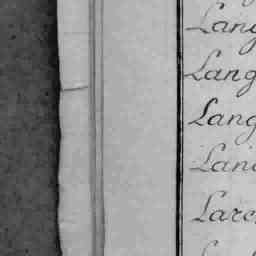 Lang
Lang
Lang
Lani
Larc